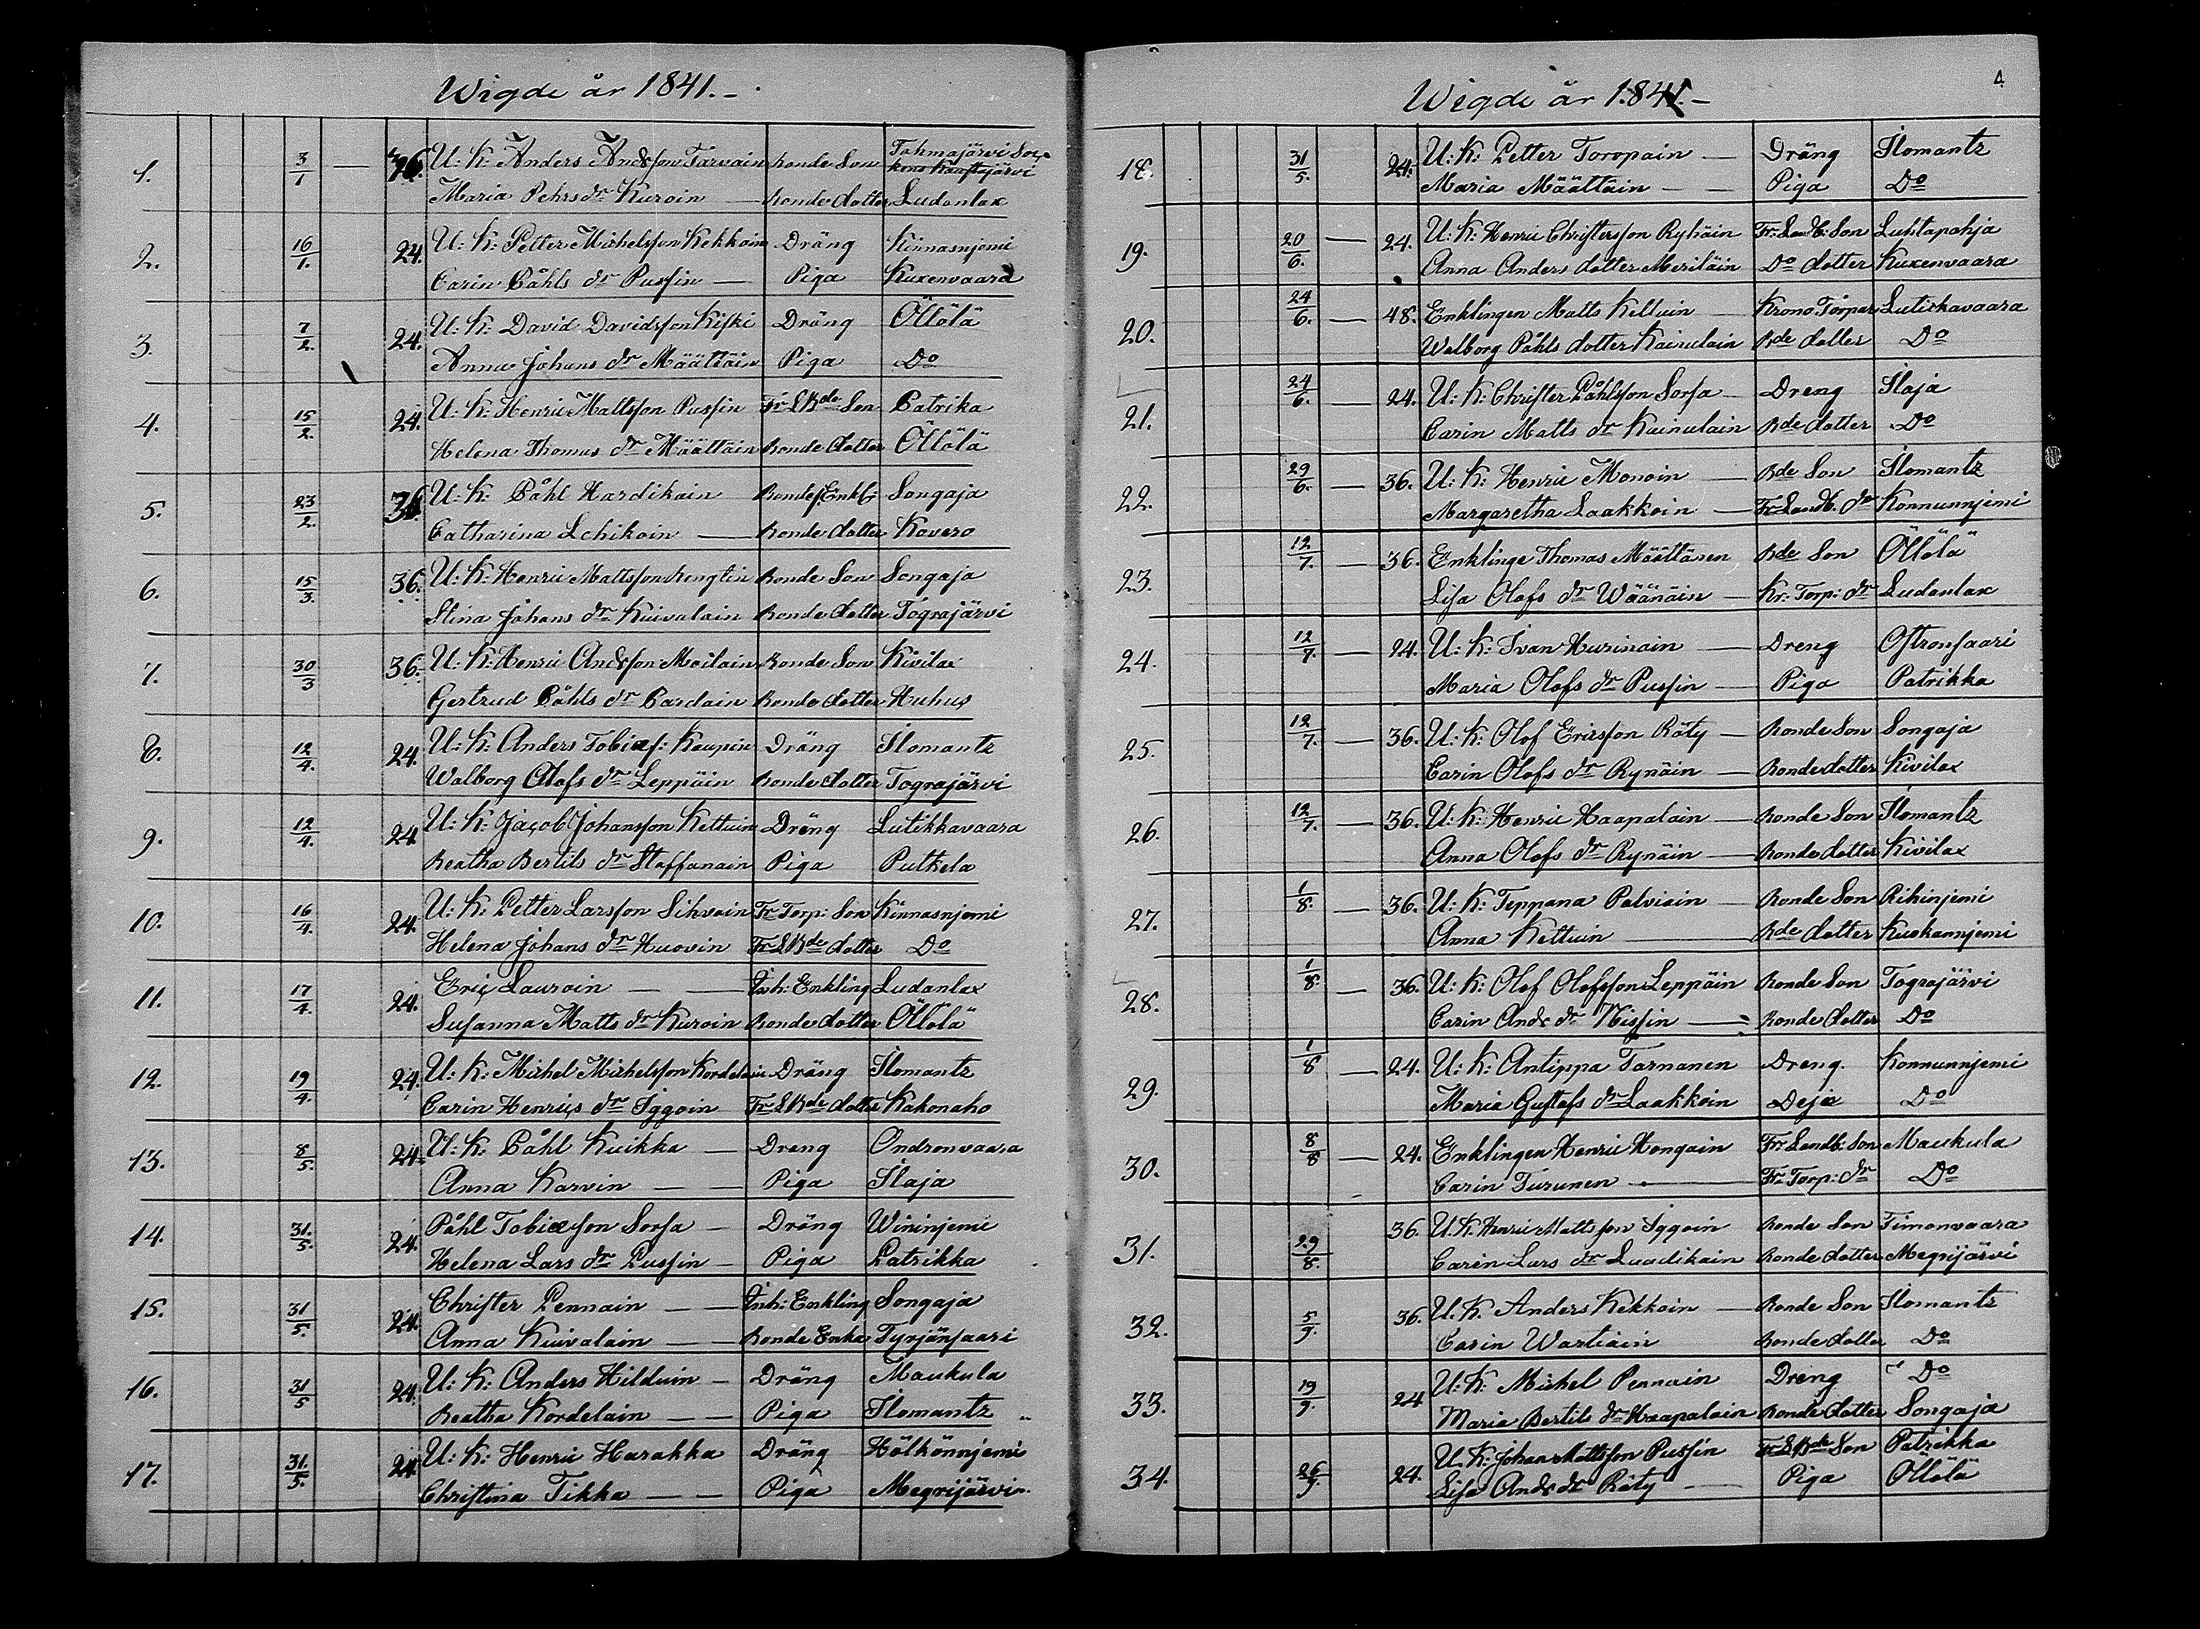 Wigde år 1841.-
1. 3/1 — 36. U: K: Anders Andsson Tarvain Bonde Son Tohmajärvi Soc-
kens Kaustajärvi
Maria Pehrs dr Kuroin — Bonde dotter Ludanlax
2. 16/1. 24. U: K: Petter Michelsson Kekkoin Dräng Kinnasnjemi
Carin Påhls dr Pussin — Piga Kuxenvaara
3. 7/2. 24. U: K: David Davidsson Kiski Dräng Öllölä
Anna Johans dr Määttäin Piga Do
4. 15/2. 24. U: K: Henric Mattsson Pussin Fr LBde Son Patrika
Helena Thomas dr Määttäin Bonde dotter Öllölä
5. 23/2. 36. U: K: Påhl Hardikain Bondes. Enkl: Songaja
Catharina Lehikoin — Bonde dotter Kovero
6. 15/3. 36. U: K: Henric Mattsson Rengtin Bonde Son Songaja
Stina Johans dr Kuivalain Bonde dotter Tograjärvi
7. 30/3 36. U: K: Henric Andsson Moilain Bonde Son Kivilax
Gertrud Påhls dr Pardain Bonde dotter Huhus
8. 12/4. 24. U: K: Anders Tobiæs: Kaupin Dräng Ilomantz
Walborg Olofs dr Leppäin Bonde dotter Tograjärvi
9. 12/4. 24. U: K: Jacob Johansson Kettuin Dräng Lutikkavaara
Beatha Bertils dr Staffanain Piga Putkela
10. 16/4. 24. U: K: Petter Larsson Sihvoin Fr Torp: Son Kinnasnjemi
Helena Johans dr Huovin Fr LBde dotter Do
11. 17/4. 24. Eric Lauroin — — Inh: Enkling Ludanlax
Susanna Matts dr Kuroin Bonde dotter Öllölä
12. 19/4. 24. U: K: Michel Michelsson Kordelain Dräng Ilomantz
Carin Henrics dr Iggoin Fr LBde dotter Kakonaho
13. 8/5. 24. U: K: Påhl Kuikka — Dreng Ondronvaara
Anna Karvin — — Piga Ilaja
14. 31./5. 24. Påhl Tobiæsson Sorsa — Dräng Wininjemi
Helena Lars dr Pussin — Piga Patrikka
15. 31/5. 24. Christer Pennain — — Inh: Enkling Songaja
Anna Kuivalain — — Bonde Enka Tyrjänsaari
16. 31/5 24. U: K: Anders Hilduin — Dräng Maukula
Beatha Kordelain — — Piga Ilomantz
17. 31./5. 24. U: K: Henric Harakka Dräng Hölkönnjemi
Christina Tikka — — Piga Megrijärvi
Wigde år 1841.- 4
18. 31/5. 24. U: K: Petter Toropain — Dräng Ilomantz
Maria Määttäin — — Piga Do
19. 20/6. — 24. U: K: Henric Christersson Ryhäin Fr: Land b. Son Luhtapohja
Anna Anders dotter Meriläin Do dotter Kuxenvaara
20. 24/6. — 48. Enklingen Matts Kettuin — Krono Torpar Lutickavaara
Walborg Påhls dotter Kainulain Bde dotter Do
21. 24/6. — 24. U: K: Christer Påhlsson Sorsa Dreng Ilaja
Carin Matts dr Kainulain Bde dotter Do
22. 29/6. — 36. U: K: Henric Monoin — Bde Son Ilomantz
Margaretha Laakkoin — Fr Landb. dr Konnunnjemi
23. 12/7. — 36. Enklinge Thomas Määttänen Bde Son Öllölä
Lisa Olofs dr Wäänäin — Kr: Torp: dr Ludanlax
24. 12/7. — 24. U: K: Ivan Hurinain — Dreng Ostronsaari
Maria Olofs dr Pussin — Piga Patrikka
25. 12/7. — 36. U: K: Olof Ericsson Räty — Bonde Son Songaja
Carin Olofs dr Rynäin — Bonde dotter Kivilax
26. 12/7. — 36. U: K: Henric Haapalain — Bonde Son Ilomantz
Anna Olofs dr Rynäin — Bonde dotter Kivilax
27. 1/8. — 36. U: K: Teppana Palviain — Bonde Son Rihinjemi
Anna Kettuin — Bde dotter Kuokannjemi
28. 1/8. — 36. U: K: Olof Olofsson Leppäin Bonde Son Tograjärvi
Carin Ands dr Nissin — Bonde dotter Do
29. 1/8 — 24. U: K: Antippa Tarnanen Dreng. Konnunnjemi
Maria Gustafs dr Laakkoin Deja Do
30. 8/8 — 24. Enklingen Henric Hongain Fr Landb. Son Maukula
Carin Turunen — Fr Torp: dr Do
31. 29/8. 36. U. K. Henric Mattsson Iggoin Bonde Son Timonvaara
Carin Lars dr Luadikain Bonde dotter Megrijärvi
32. 5/9. 36. U: K. Anders Kekkoin — Bonde Son Ilomantz
Carin Wartiain Bonde dotter Do
33. 19/9. 24 U: K. Michel Pennain Dreng Do
Maria Bertils dr Haapalain Bonde dotter Songaja
34. 26/9. 24. U. K. Johan Mattsson Pussin Fr LBde Son Patrikka
Lisa Ands dr Räty — Piga Öllölä